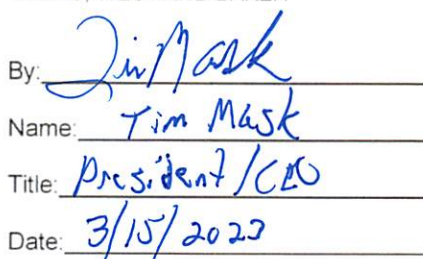 By: Tim Mask
Name: Tim Mask
Title: President / CEO
Date: 3/15/2023